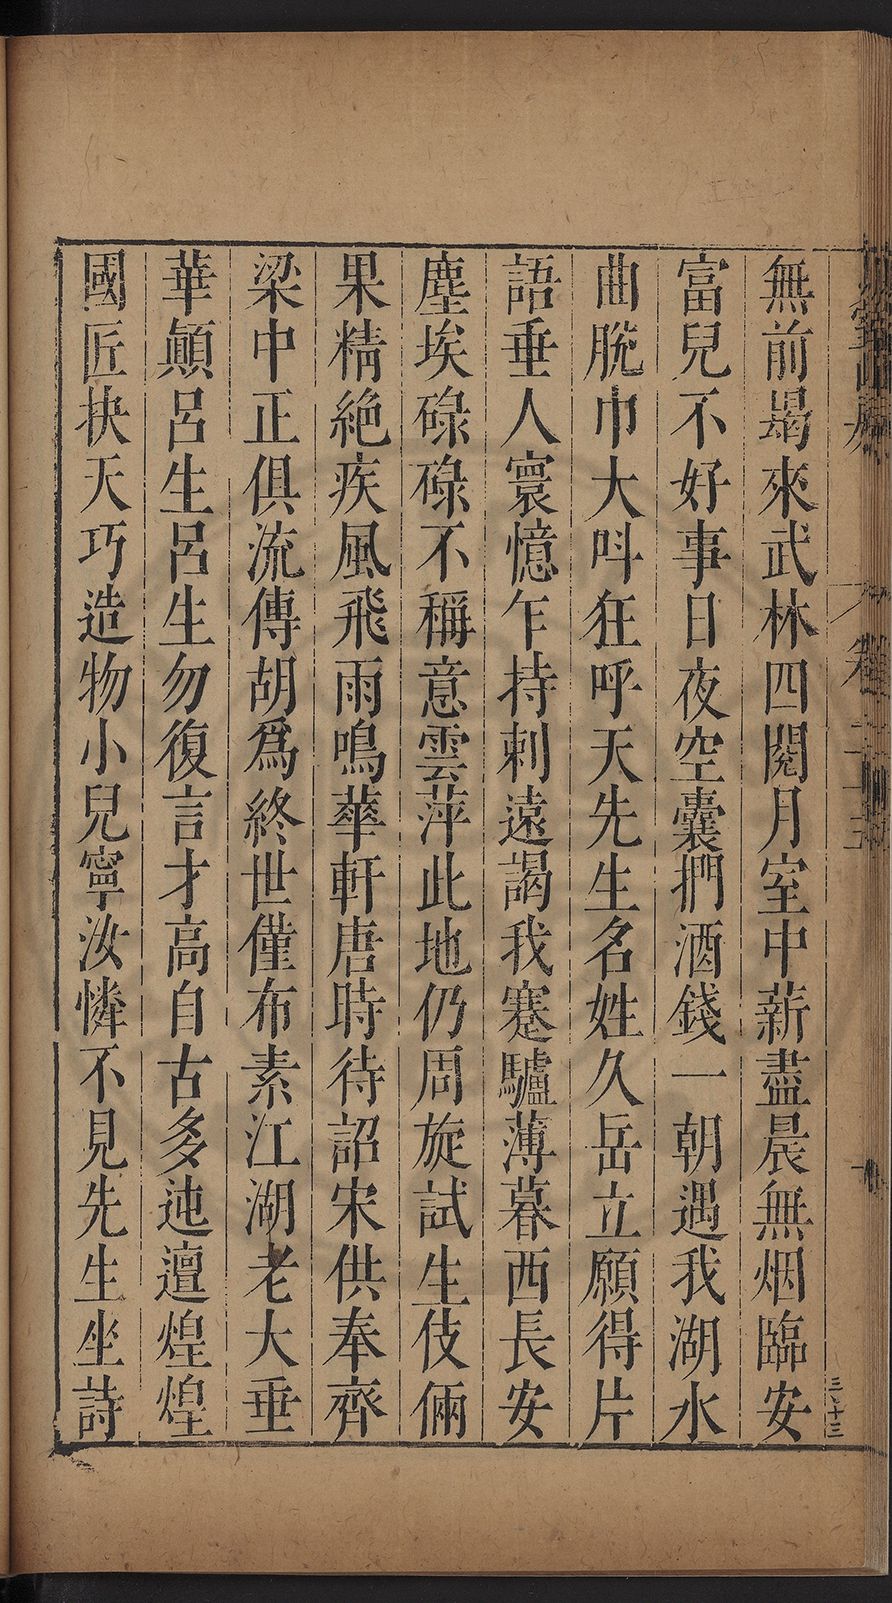 無前朅來武林四閱月室中薪盡晨無烟臨安
富兒不好事日夜空囊捫酒錢一朝遇我湖水
曲脫巾大呌狂呼天先生名姓久岳立願得片
語垂人寰憶乍持刺遠謁我蹇驢薄暮西長安
塵埃碌碌不稱意雲萍此地仍周旋試生伎倆
果精絶疾風飛雨鳴華軒唐時待詔宋供奉齊
梁中正俱流傳胡爲終世僅布素江湖老大垂
華顚呂生呂生勿復言才高自古多迍邅煌煌
國匠抉天巧造物小兒寧汝憐不見先生坐詩
卷二十三